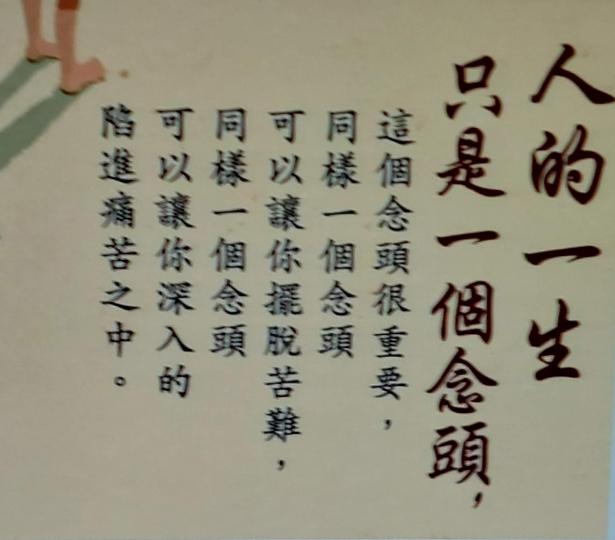 人的一生
只是一個念頭，
這個念頭很重要，
同樣一個念頭
可以讓你擺脫苦難，
同樣一個念頭
可以讓你深入的
陷進痛苦之中。